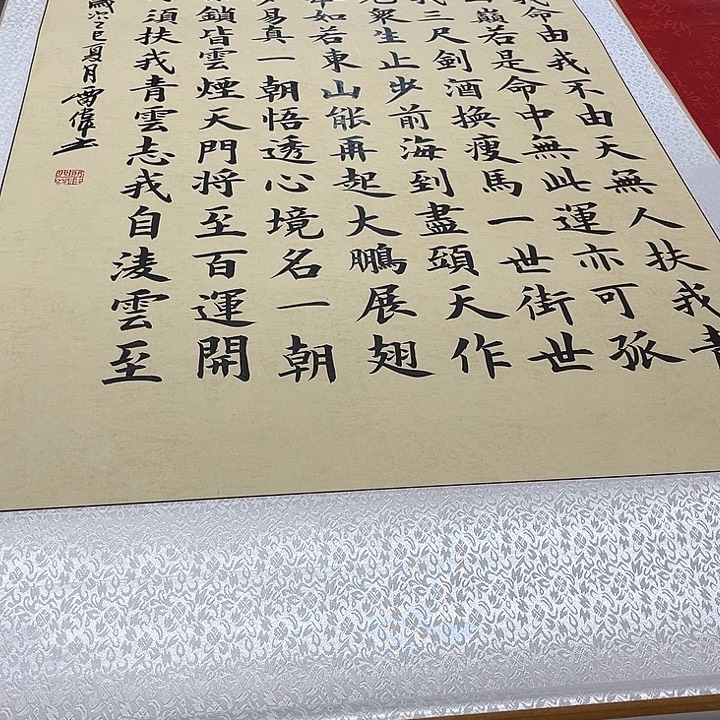 我命由我不由天無人扶我青
巔若是命中無此運亦可孤
我三尺劍酒換瘦馬一世街世
眾生止步前海到盡頭天作
如若東山能再起大鵬展翅
易真一朝悟透心境名一朝
鎖皆雲煙天門将至百運開
須扶我青雲志我自淩雲至
歲次乙巳夏月雷偉书